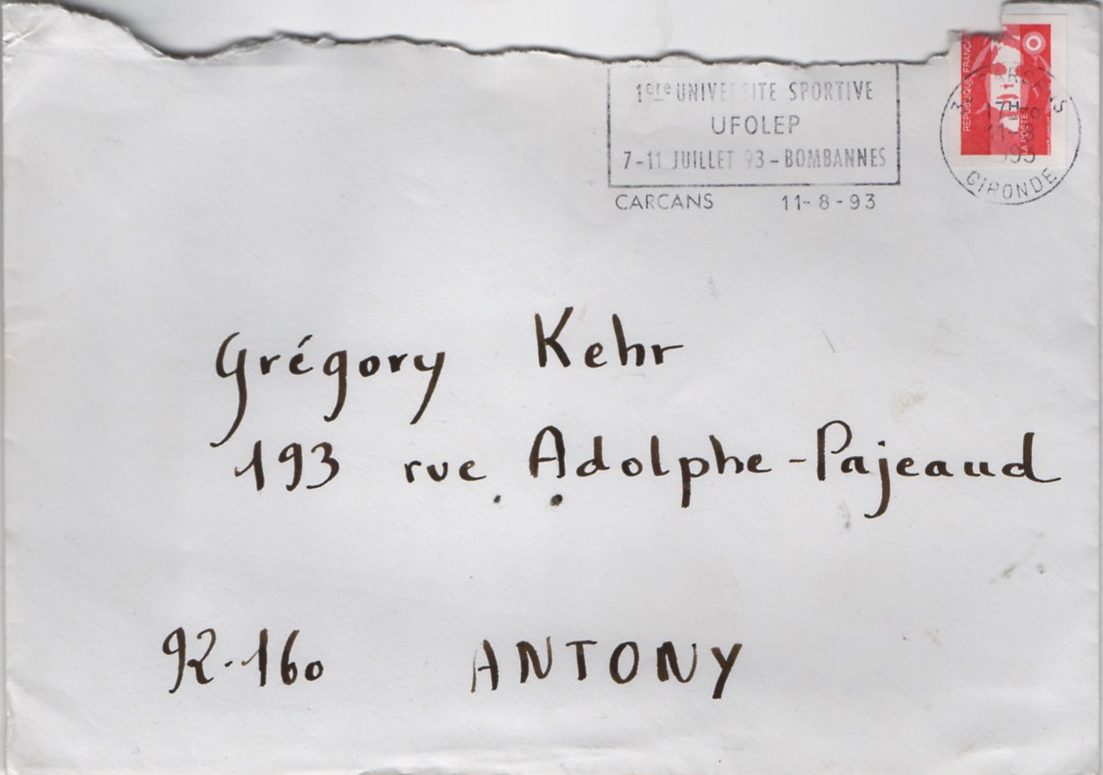 1ere UNIVERSITE SPORTIVE
UFOLEP
7-11 JUILLET 93 - BOMBANNES
CARCANS 11-8-93
REPUBLIQUE FRANÇA
LA POSTE
CARCANS
17H
11-8
1993
GIRONDE
Grégory Kehr
193 rue Adolphe-Pajeaud
92.160 ANTONY